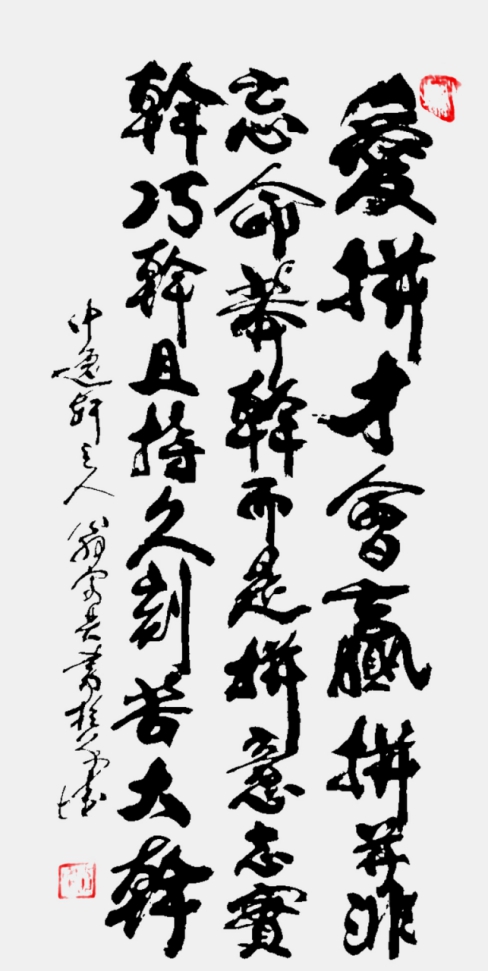 愛拼才會贏拼并非
忘命莽幹而是拼意志實
幹巧幹且持久刻苦大幹
逸軒主人 翁書於